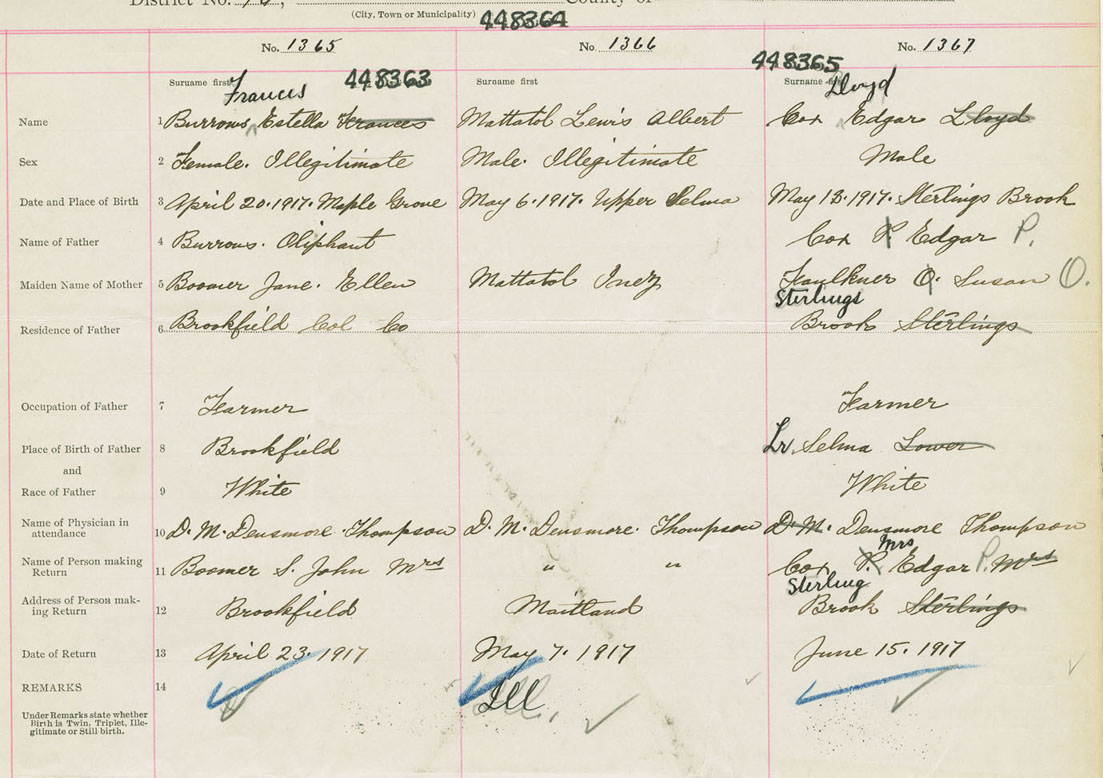 District No. County of
(City, Town or Municipality) 448364
No. 1365 No. 1366 No. 1367
448363 448365
Surname first Surname first Surname first
Frances Lloyd
Name 1 Burrows Estella Frances Mattatol Lewis Albert Cox Edgar Lloyd
Sex 2 Female. Illegitimate Male. Illegitimate Male
Date and Place of Birth 3 April 20. 1917. Maple Grove May 6. 1917. Upper Selma May 13. 1917. Sterlings Brook
Name of Father 4 Burrows. Oliphant Cox P. Edgar P.
Maiden Name of Mother 5 Boomer Jane. Ellen Mattatol Inez Faulkner O. Susan O.
Sterlings
Residence of Father 6 Brookfield Col Co Brook Sterlings
Occupation of Father 7 Farmer Farmer
Place of Birth of Father 8 Brookfield Lr. Selma Lower
and
Race of Father 9 White White
Name of Physician in
attendance 10 D. M. Densmore Thompson D. M. Densmore. Thompson D. M. Densmore Thompson
Mrs
Name of Person making
Return 11 Boomer S. John Mrs " " Cox P. Edgar P. Mrs
Sterling
Address of Person mak-
ing Return 12 Brookfield Maitland Brook Sterlings
Date of Return 13 April 23. 1917 May 7. 1917 June 15. 1917
REMARKS 14 Ill Ill.
Under Remarks state whether
Birth is Twin, Triplet, Ille-
gitimate or Still-birth.